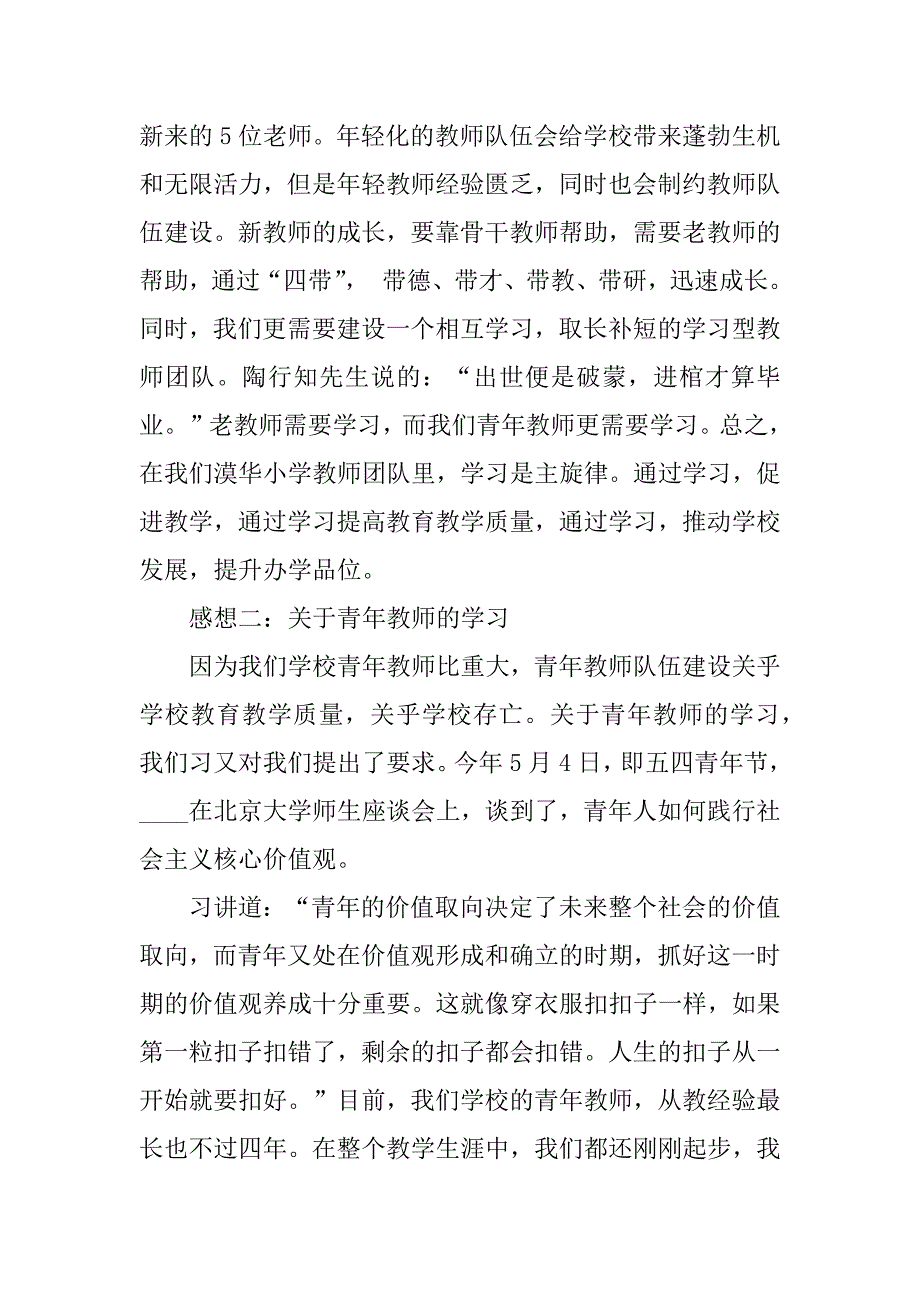 新来的5位老师。年轻化的教师队伍会给学校带来蓬勃生机
和无限活力，但是年轻教师经验匮乏，同时也会制约教师队
伍建设。新教师的成长，要靠骨干教师帮助，需要老教师的
帮助，通过“四带”， 带德、带才、带教、带研，迅速成长。
同时，我们更需要建设一个相互学习，取长补短的学习型教
师团队。陶行知先生说的：“出世便是破蒙，进棺才算毕
业。”老教师需要学习，而我们青年教师更需要学习。总之，
在我们漠华小学教师团队里，学习是主旋律。通过学习，促
进教学，通过学习提高教育教学质量，通过学习，推动学校
发展，提升办学品位。
感想二：关于青年教师的学习
因为我们学校青年教师比重大，青年教师队伍建设关乎
学校教育教学质量，关乎学校存亡。关于青年教师的学习，
我们习又对我们提出了要求。今年5月4日，即五四青年节，
____在北京大学师生座谈会上，谈到了，青年人如何践行社
会主义核心价值观。
习讲道：“青年的价值取向决定了未来整个社会的价值
取向，而青年又处在价值观形成和确立的时期，抓好这一时
期的价值观养成十分重要。这就像穿衣服扣扣子一样，如果
第一粒扣子扣错了，剩余的扣子都会扣错。人生的扣子从一
开始就要扣好。”目前，我们学校的青年教师，从教经验最
长也不过四年。在整个教学生涯中，我们都还刚刚起步，我